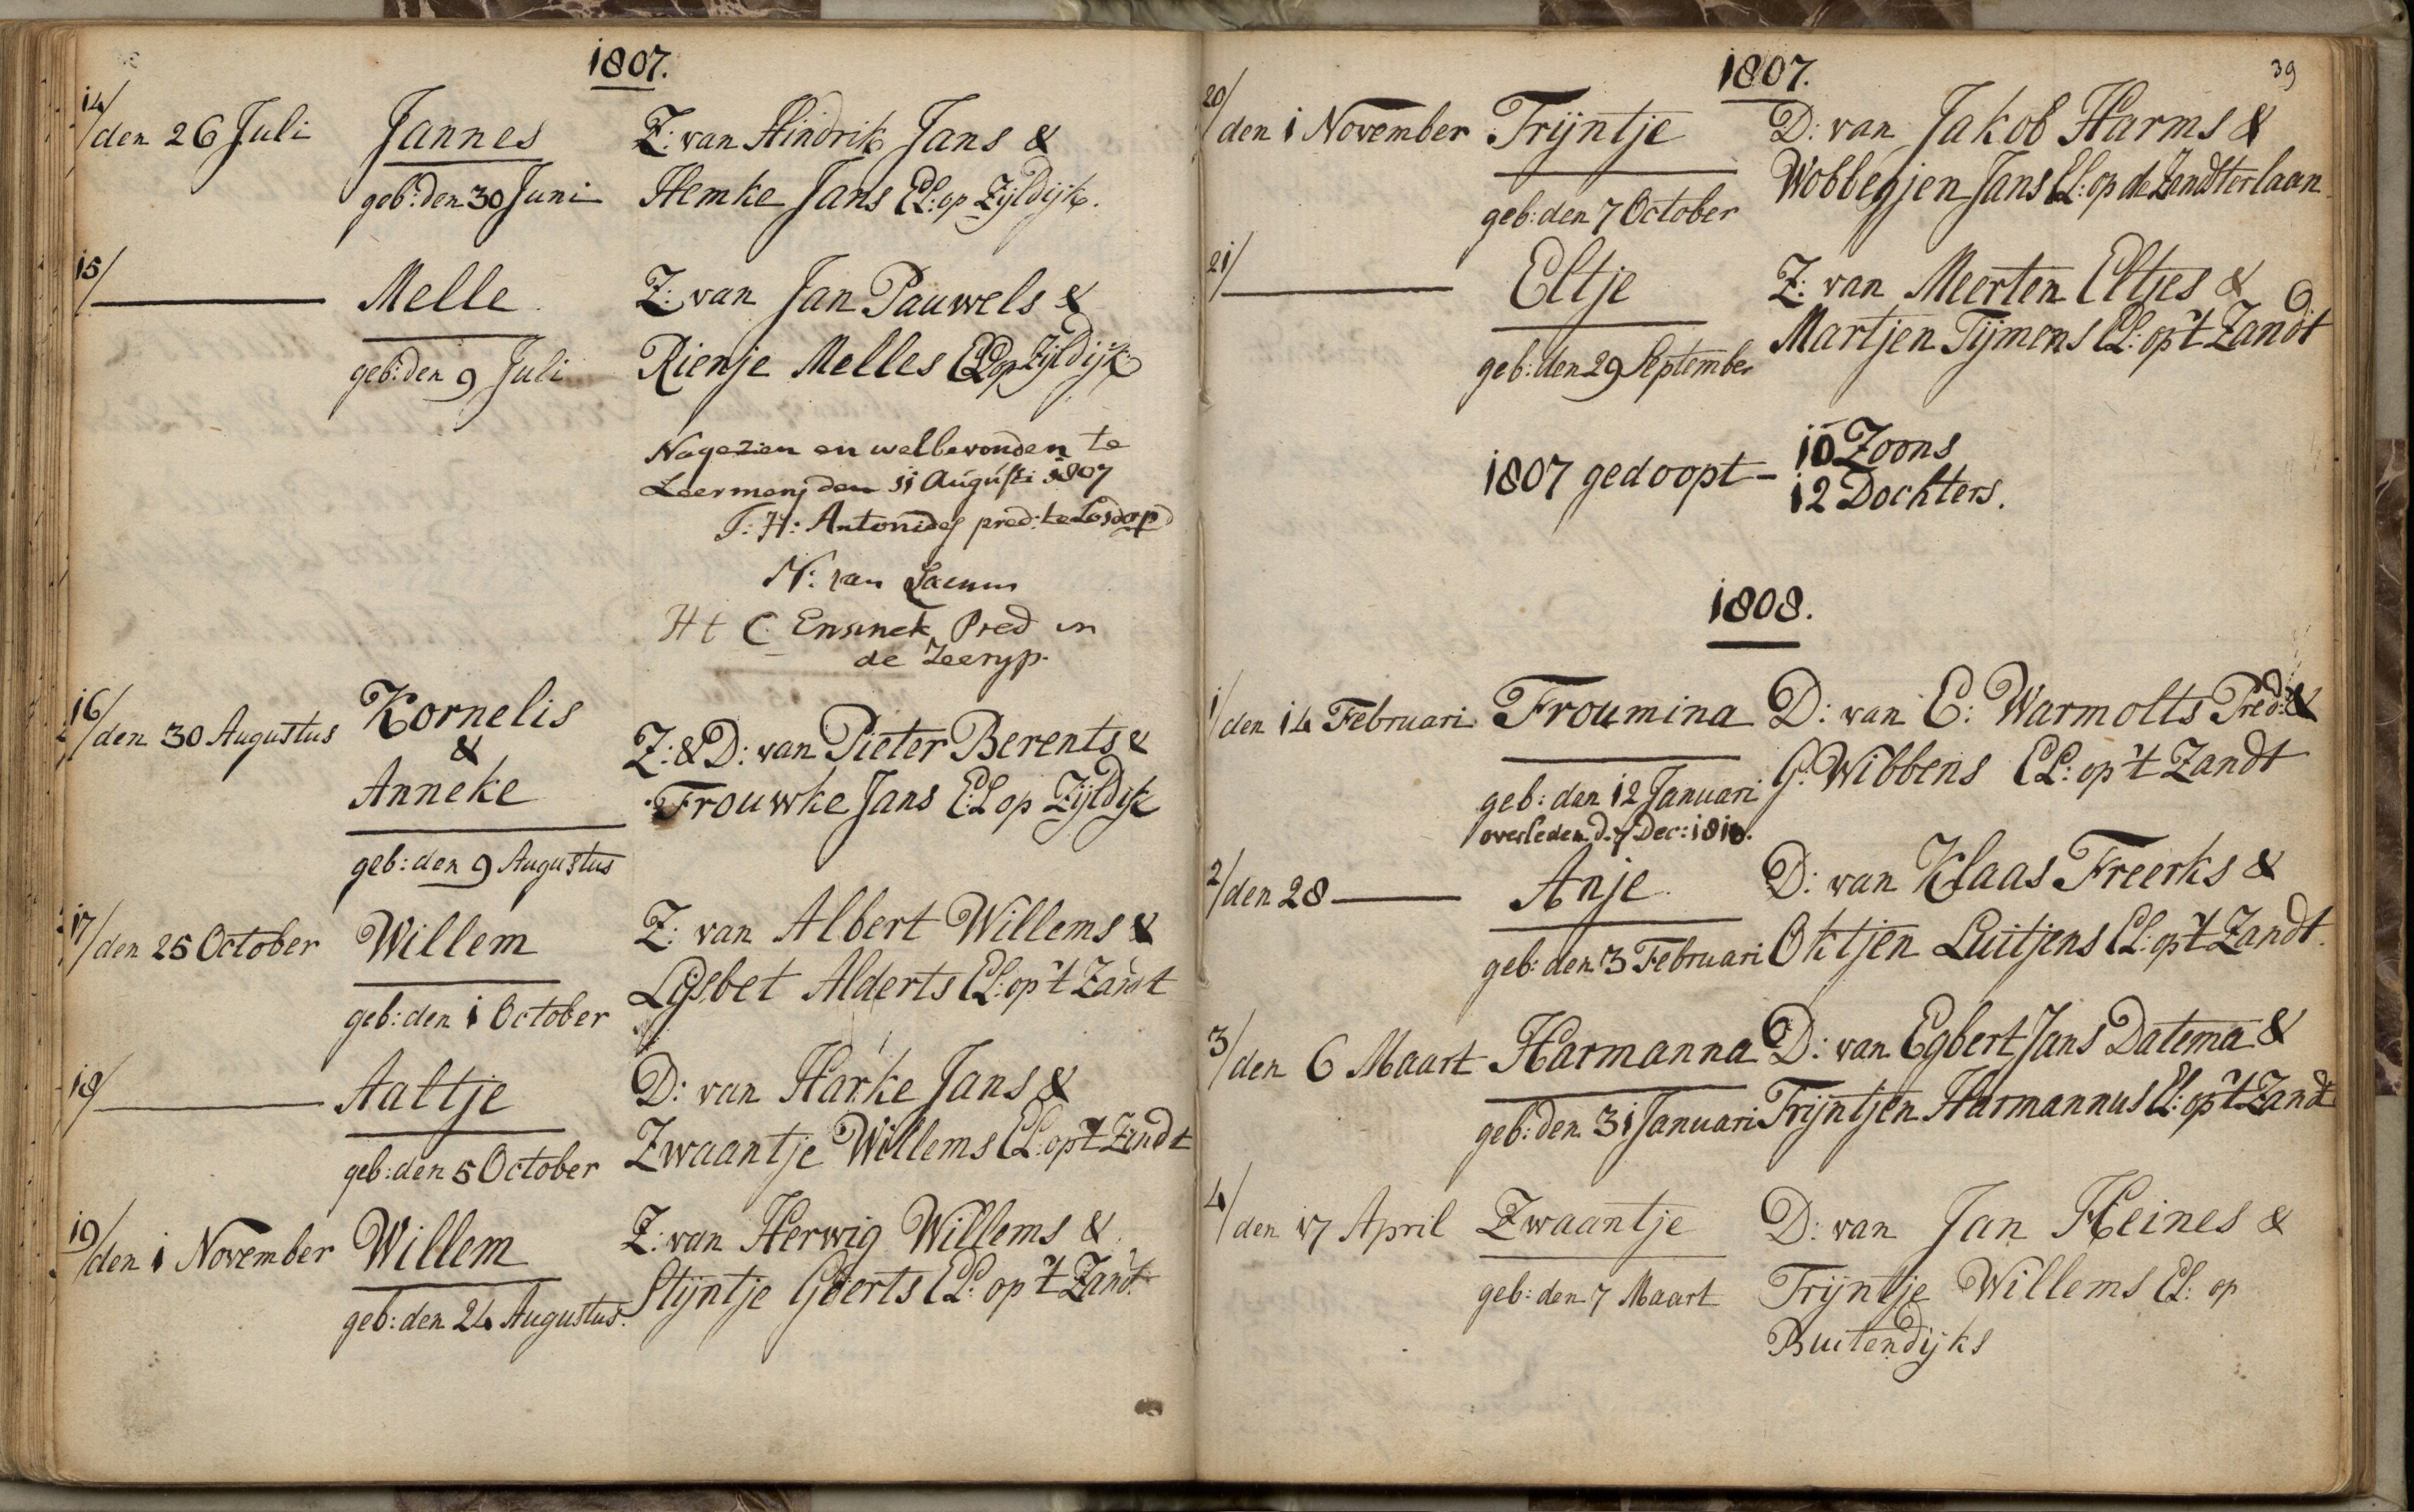 1807.
14/
den 26 Juli Jannes Z: van Hindrik Jans &
geb: den 30 Juni Hemke Jans EL: op Zijldijk.
15/
Melle Z: van Jan Pauwels &
geb: den 9 Juli Rienje Melles EL op Zijldijk
Nagezien en welbevonden te
Leermens den 11 Augusti 1807
T: H: Antonides pred: te Losdorp
N: van
Ht C: Ensinck Pred in
de Zeeryp.
16/
den 30 Augustus Kornelis
&
Anneke
Z: & D: van Pieter Berents &
Frouwke Jans EL op Zijldijk
geb: den 9 Augustus
17/
den 25 October Willem Z: van Albert Willems &
geb: den 1 October Lijsbet Alderts EL: op 't Zandt
18/
Aaltje D: van Harke Jans &
geb: den 5 October Zwaantje Willems EL: op 't Zandt
19/
den 1 November Willem Z: van Herwig Willems &
geb: den 24 Augustus. Stijntje Geerts EL: op 't Zandt
1807. 39
20/
den 1 November Trijntje D: van Jakob Harms &
geb: den 7 October Wobbegjen Jans EL: op de Zandterlaan
21/
Eltje Z: van Meerten Eltjes &
geb: den 29 September Martjen Tijmens EL: op 't Zandt
1807 gedoopt - 10 Zoons
12 Dochters.
1808.
1/
den 14 Februari Froumina D: van E: Warmolts Pred: &
geb: den 12 Januari G: Wibbens EL: op 't Zandt
overleden d. 7 Dec: 1810.
2/
den 28 Anje D: van Klaas Freerks &
geb: den 3 Februari Oktjen Luitjens EL: op 't Zandt.
3/
den 6 Maart Harmanna D: van Egbert Jans Datema &
geb: den 31 Januari Trijntjen Harmannus EL: op 't Zandt
4/
den 17 April Zwaantje D: van Jan Heines &
geb: den 7 Maart Trijntje Willems EL: op
Buitendijks